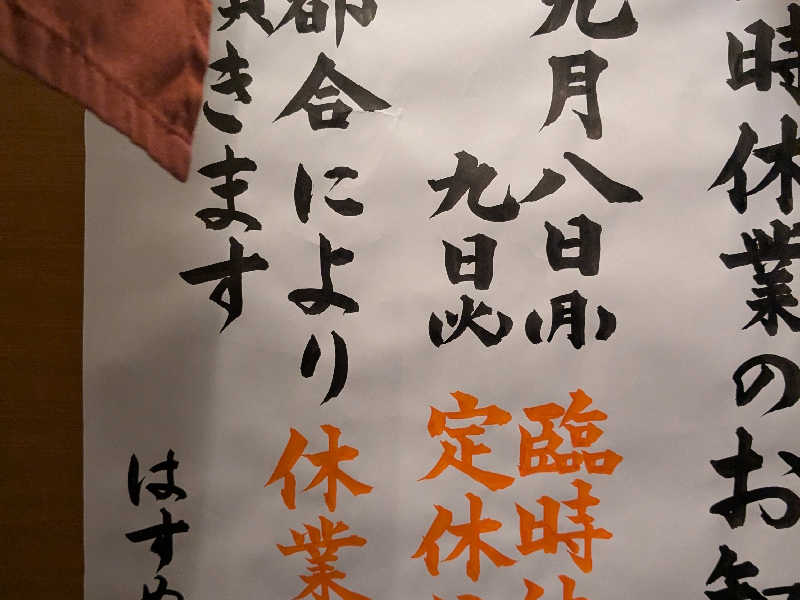 時休業のお知
九月八日(月) 臨時休
九日(火) 定休
都合により 休業
頂きます
はすめ